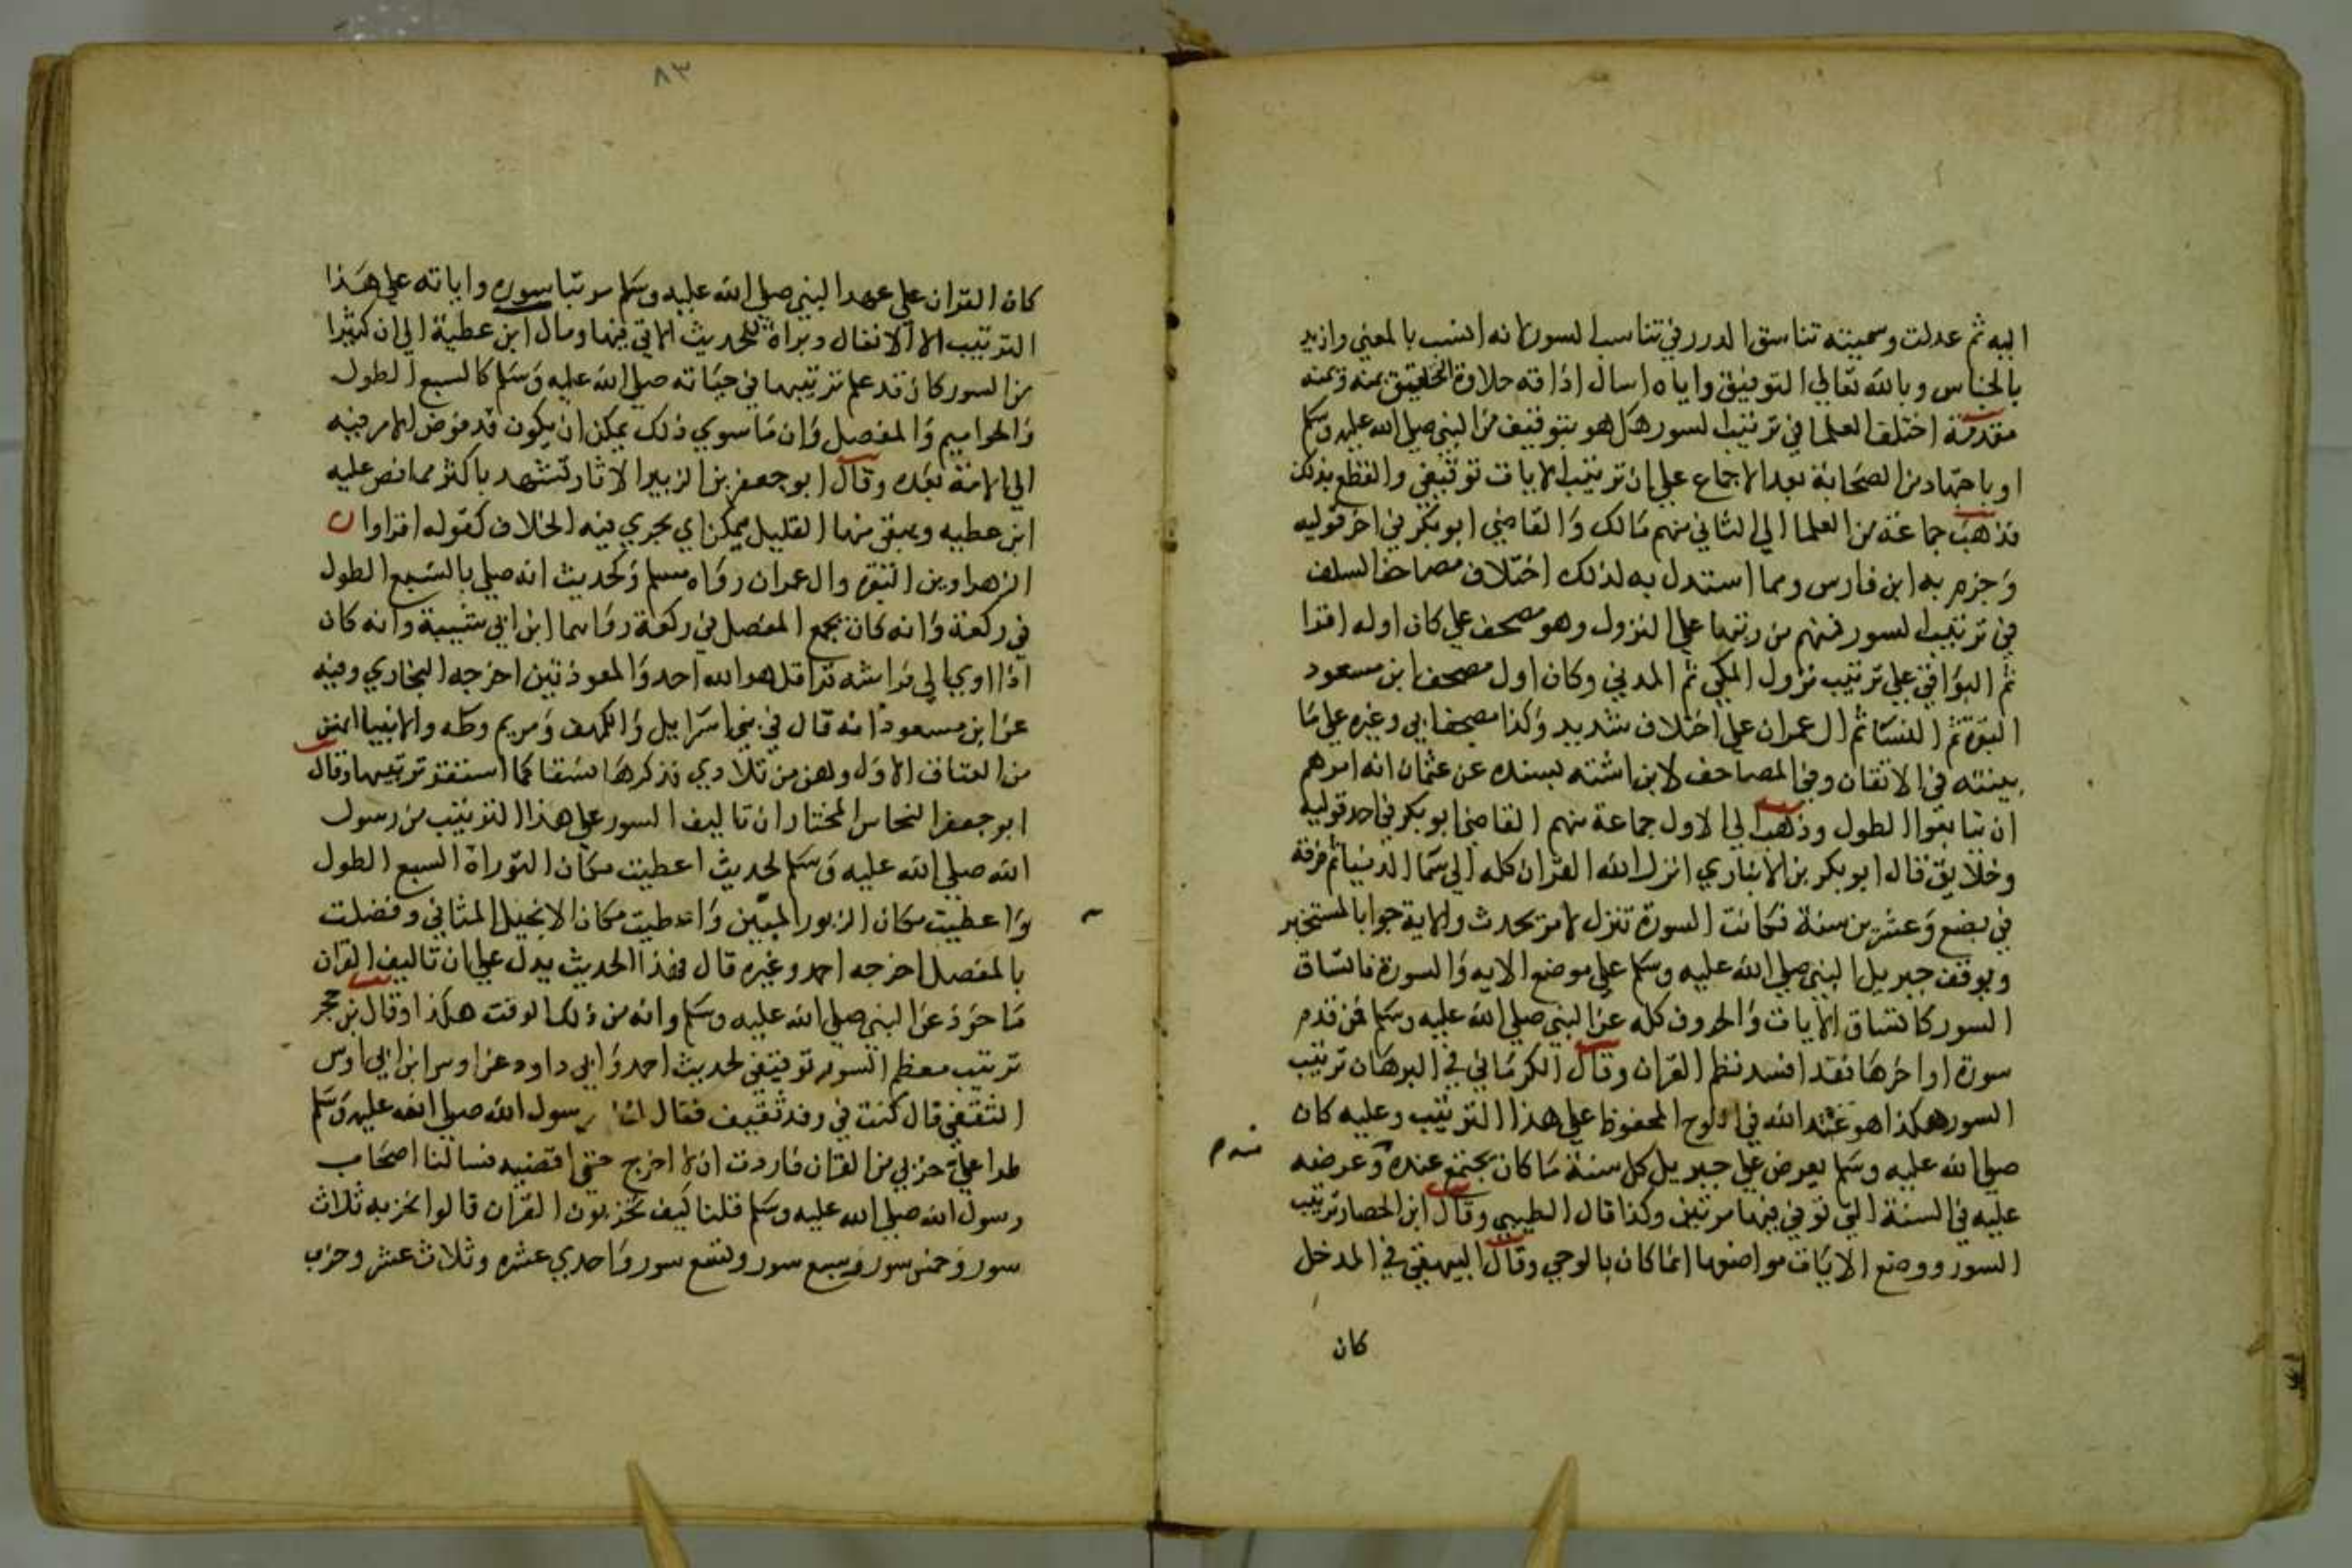 اليه ثم عدلت وسميته تناسق الدرر في تناسب السور لانه انسب بالمعني وازيد
بالجناس وبالله تعالي التوفيق واياه اسال اذاقه حلاوة التحقيق بمنه ويمنه
مقدمة اختلف العلما في ترتيب السور هل هو بتوقيف من النبي صلي الله عليه وسلم
او باجتهاد من الصحابة بعد الاجماع علي ان ترتيب الايات توقيفي والقطع بذلك
فذهب جماعة من العلما الي الثاني منهم مالك والقاضي ابو بكر في اخر قوليه
وجزم به ابن فارس ومما استدل به لذلك اختلاف مصاحف السلف
في ترتيب السور فمنهم من رتبها علي النزول وهو مصحف علي كان اوله اقرا
ثم البواقي علي ترتيب نزول المكي ثم المدني وكان اول مصحف ابن مسعود
البقرة ثم النسا ثم ال عمران علي اختلاف شديد وكذا مصحف ابي وغيره علي ما
بينته في الاتقان وفي المصاحف لابن اشته بسنده عن عثمان انه امرهم
ان يتابعوا الطول وذهب الي الاول جماعة منهم القاضي ابو بكر في احد قوليه
وخلايق قال ابو بكر بن الانباري انزل الله القران كله الي سما الدنيا ثم فرقه
في بضع وعشرين سنة فكانت السورة تنزل لامر يحدث والاية جوابا لمستخبر
ويوقف جبريل النبي صلي الله عليه وسلم علي موضع الايه والسورة فاتساق
السور كاتساق الايات والحروف كله عن النبي صلي الله عليه وسلم فمن قدم
سورة او اخرها فقد افسد نظم القران وقال الكرماني في البرهان ترتيب
السور هكذا هو عند الله في اللوح المحفوظ علي هذا الترتيب وعليه كان
صلي الله عليه وسلم يعرض علي جبريل كل سنة ما كان يجتمع عنده وعرضه
عليه في السنة التي توفي فيها مرتين وكذا قال الطيبي وقال ابن الحصار ترتيب
السور ووضع الايات مواضعها انما كان بالوحي وقال البيهقي في المدخل
كان
٨٣
كان القران علي عهد النبي صلي الله عليه وسلم مرتبا سوره واياته علي هذا
الترتيب الا الانفال وبراة للحديث الاتي فيها ومال ابن عطية الي ان كثيرا
من السور كان قد علم ترتيبها في حياته صلي الله عليه وسلم كالسبع الطول
والحواميم والمفصل وان ما سوي ذلك يمكن ان يكون قد فوض الامر فيه
الي الامة بعده وقال ابو جعفر بن الزبير الاثار تشهد باكثر مما نص عليه
ابن عطيه ويبقي منها القليل يمكن اي يجري فيه الخلاف كقوله اقراوا
الزهراوين البقرة وال عمران رواه مسلم وكحديث انه صلي بالسبع الطول
في ركعة وانه كان يجمع المفصل في ركعة رواهما ابن ابي شيبة وانه كان
اذا اوي الي فراشه قرا قل هو الله احد والمعوذتين اخرجه البخاري وفيه
عن ابن مسعود انه قال في بني اسراييل والكهف ومريم وطه والانبيا انهن
من العتاق الاول وهن من تلادي فذكرها نسقا كما استقر ترتيبها وقال
ابو جعفر النحاس المختار ان تاليف السور علي هذا الترتيب من رسول
الله صلي الله عليه وسلم لحديث اعطيت مكان التوراة السبع الطول
واعطيت مكان الزبور المبين واعطيت مكان الانجيل المثاني وفضلت
بالمفصل اخرجه احمد وغيره قال فهذا الحديث يدل علي ان تاليف القران
ماخوذ عن النبي صلي الله عليه وسلم وانه من ذلك الوقت هكذا وقال بن حجر
ترتيب معظم السور توقيفي لحديث احمد وابي داود عن اوس ابن ابي اوس
الثقفي قال كنت في وفد ثقيف فقال لنا رسول الله صلي الله عليه وسلم
طرا علي حزبي من القران فاردت ان لا اخرج حتي اقضيه فسالنا اصحاب
رسول الله صلي الله عليه وسلم قلنا كيف تحزبون القران قالوا نحزبه ثلاث
سور وخمس سور وسبع سور وتسع سور واحدي عشره وثلاث عشر وحزب